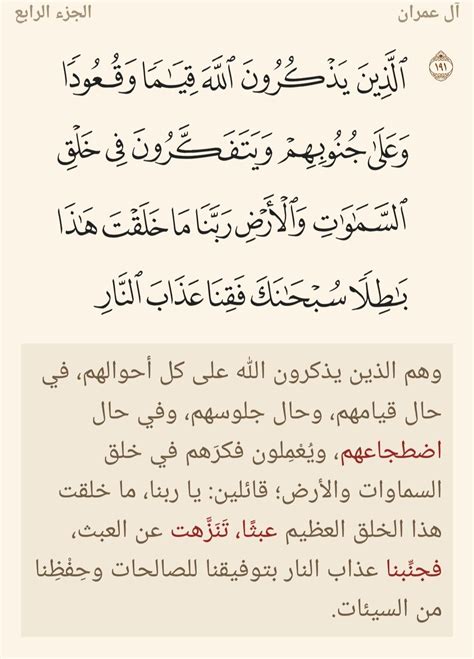 آل عمران
الجزء الرابع
١٩١
ٱلَّذِينَ يَذۡكُرُونَ ٱللَّهَ قِيَٰمٗا وَقُعُودٗا
وَعَلَىٰ جُنُوبِهِمۡ وَيَتَفَكَّرُونَ فِي خَلۡقِ
ٱلسَّمَٰوَٰتِ وَٱلۡأَرۡضِ رَبَّنَا مَا خَلَقۡتَ هَٰذَا
بَٰطِلٗا سُبۡحَٰنَكَ فَقِنَا عَذَابَ ٱلنَّارِ
وهم الذين يذكرون الله على كل أحوالهم، في
حال قيامهم، وحال جلوسهم، وفي حال
اضطجاعهم، ويُعْمِلون فكرَهم في خلق
السماوات والأرض؛ قائلين: يا ربنا، ما خلقت
هذا الخلق العظيم عبثًا، تَنَزَّهت عن العبث،
فجنِّبنا عذاب النار بتوفيقنا للصالحات وحِفْظِنا
من السيئات.